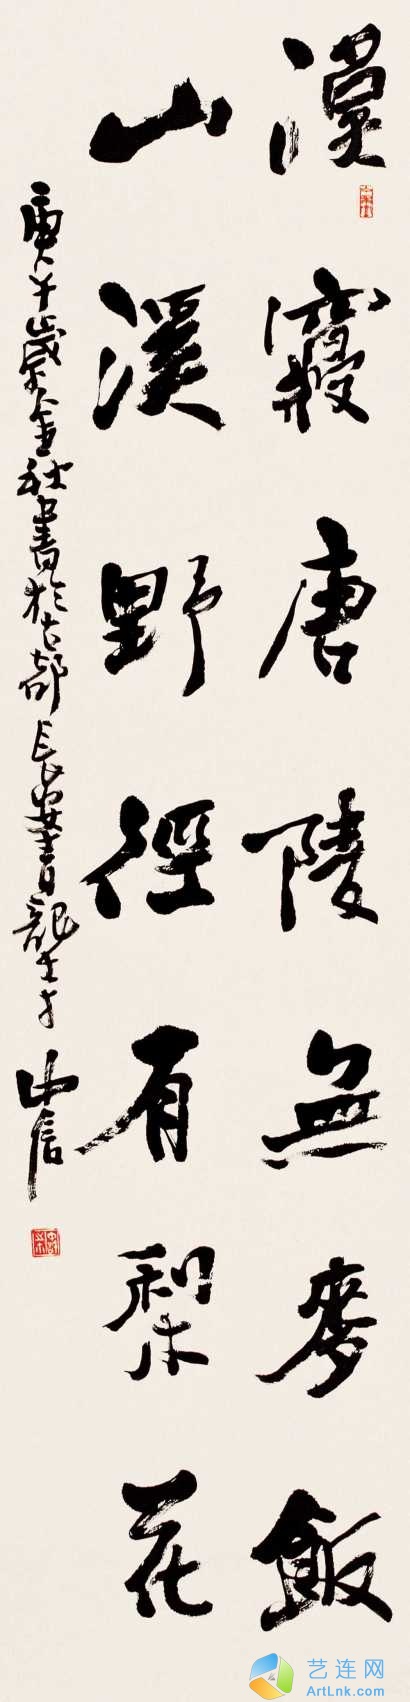 漢寢唐陵無麥飯
山溪野徑有梨花
庚午歲金秋書於古都長安 中信
艺连网
ArtLnk.com